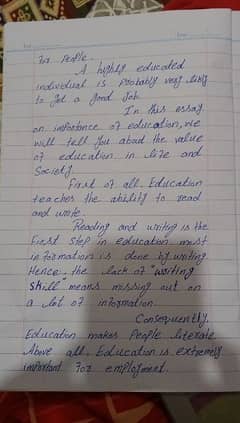 for People.
A highly educated
individual is Probably very likely
to Get a good Job.
In this essay
on importance of education, we
will tell you about the value
of education in life and
Society.
First of all, Education
teaches the ability to read
and write
Reading and writing is the
First step in education most
information is done by writing
Hence, the lack of "writing
skill" means missing out on
a lot of information.
Consequently,
Education makes People literate
Above all, Education is extremely
important for employment.